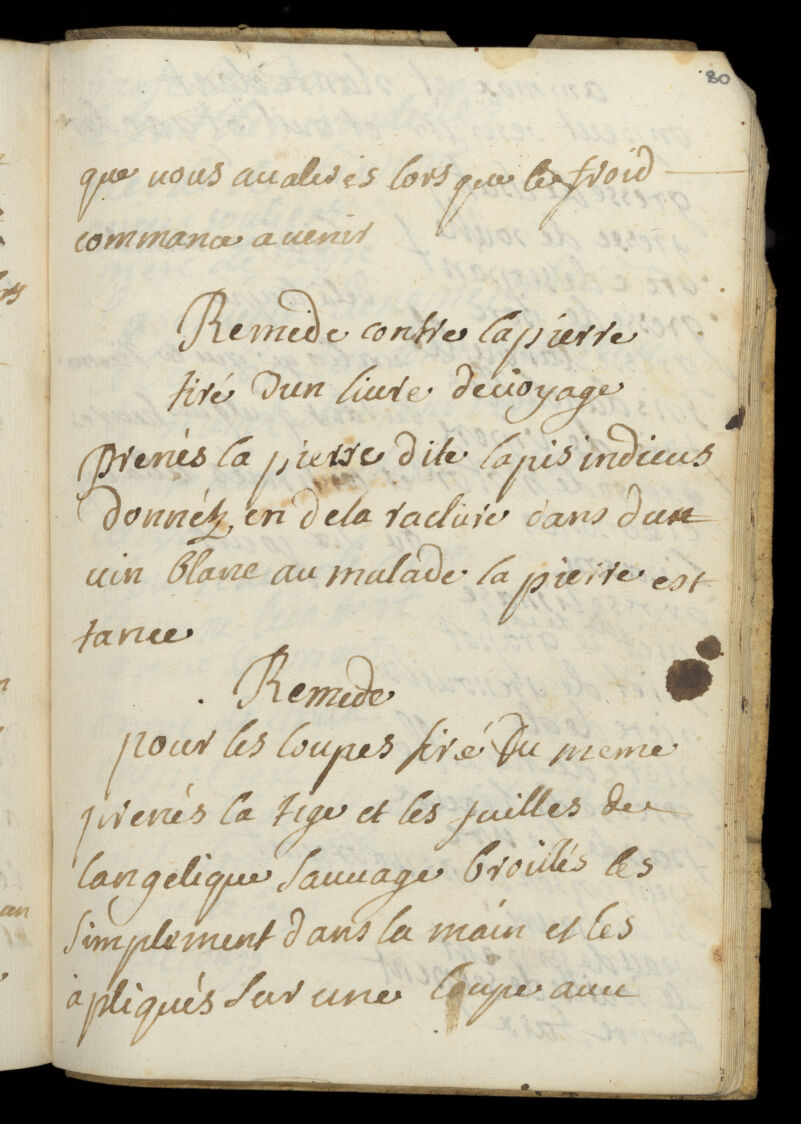 80
que vous avaleres lors que le froid
commance a venir
Remede contre la pierre
tiré d'un livre de voyage
prenés la pierre dite lapis indicus
donnéz en de la raclure dans du
vin blanc au malade la pierre est
Remede
pour les loupes tiré du meme
prenés la tige et les fuilles de
langelique sauvage broiiés les
simplement dans la main et les
apliqués sur une loupe avec